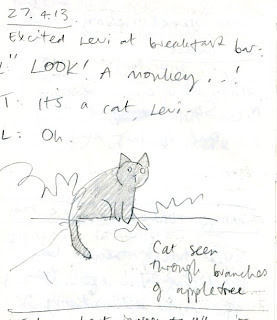 27.4.13.
Excited Levi at breakfast bar:
L: " LOOK! A monkey...!
T: It's a cat, Levi.
L: Oh.
Cat seen
through branches
of appletree